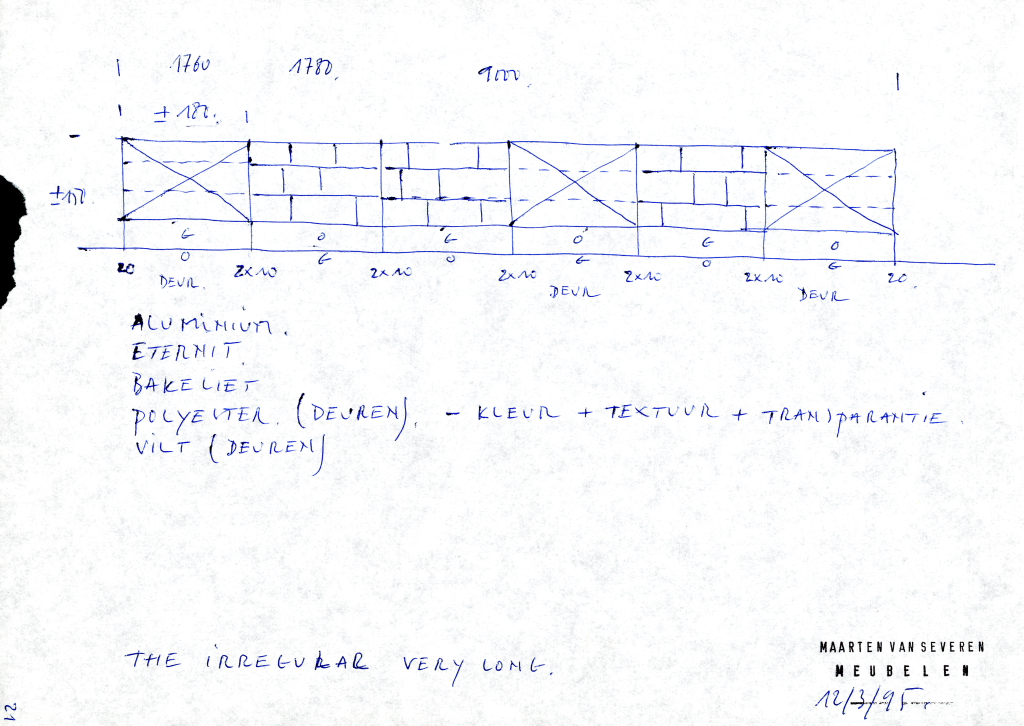 1760 1780. 9000.
± 180.
G O G O G O
O G O G O G
20 2x10 2x10 2x10 2x10 2x10 20.
DEUR. DEUR DEUR
ALUMINIUM.
ETERNIT.
BAKELIET
POLYESTER. (DEUREN). - KLEUR + TEXTUUR + TRANSPARANTIE.
VILT (DEUREN)
THE IRREGULAR VERY LONG.
MAARTEN VAN SEVEREN
MEUBELEN
12/3/95
21